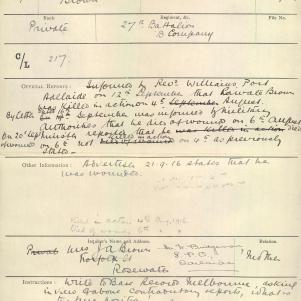 Brown
Rank
Regiment, &c.
File No.
Private
27th Battalion
B Company
C/L 217.
OFFICIAL REPORTS : Informed by Revd Williams, Port
Adelaide on 12th September that Private Brown
was killed in action on 4th September August.
By letter 14th September was informed by Military
Authorities that he died of wounds on 6th August
On 20th September reported that he was killed in action died
of wounds 6th not killed in action on 4th as previously
stated.
Other Information : Advertiser 21-9-16 states that he
was wounded.
Killed in action 4th Aug 1916
Died of wounds 6th
Inquirer's Name and Address.
Private Mrs J A Brown
Norfolk St
Rosewater
G.P.O.
Adelaide
Mother
Instructions : Write to Base Records Melbourne, asking
in view of above contradictory reports, what is
the true position